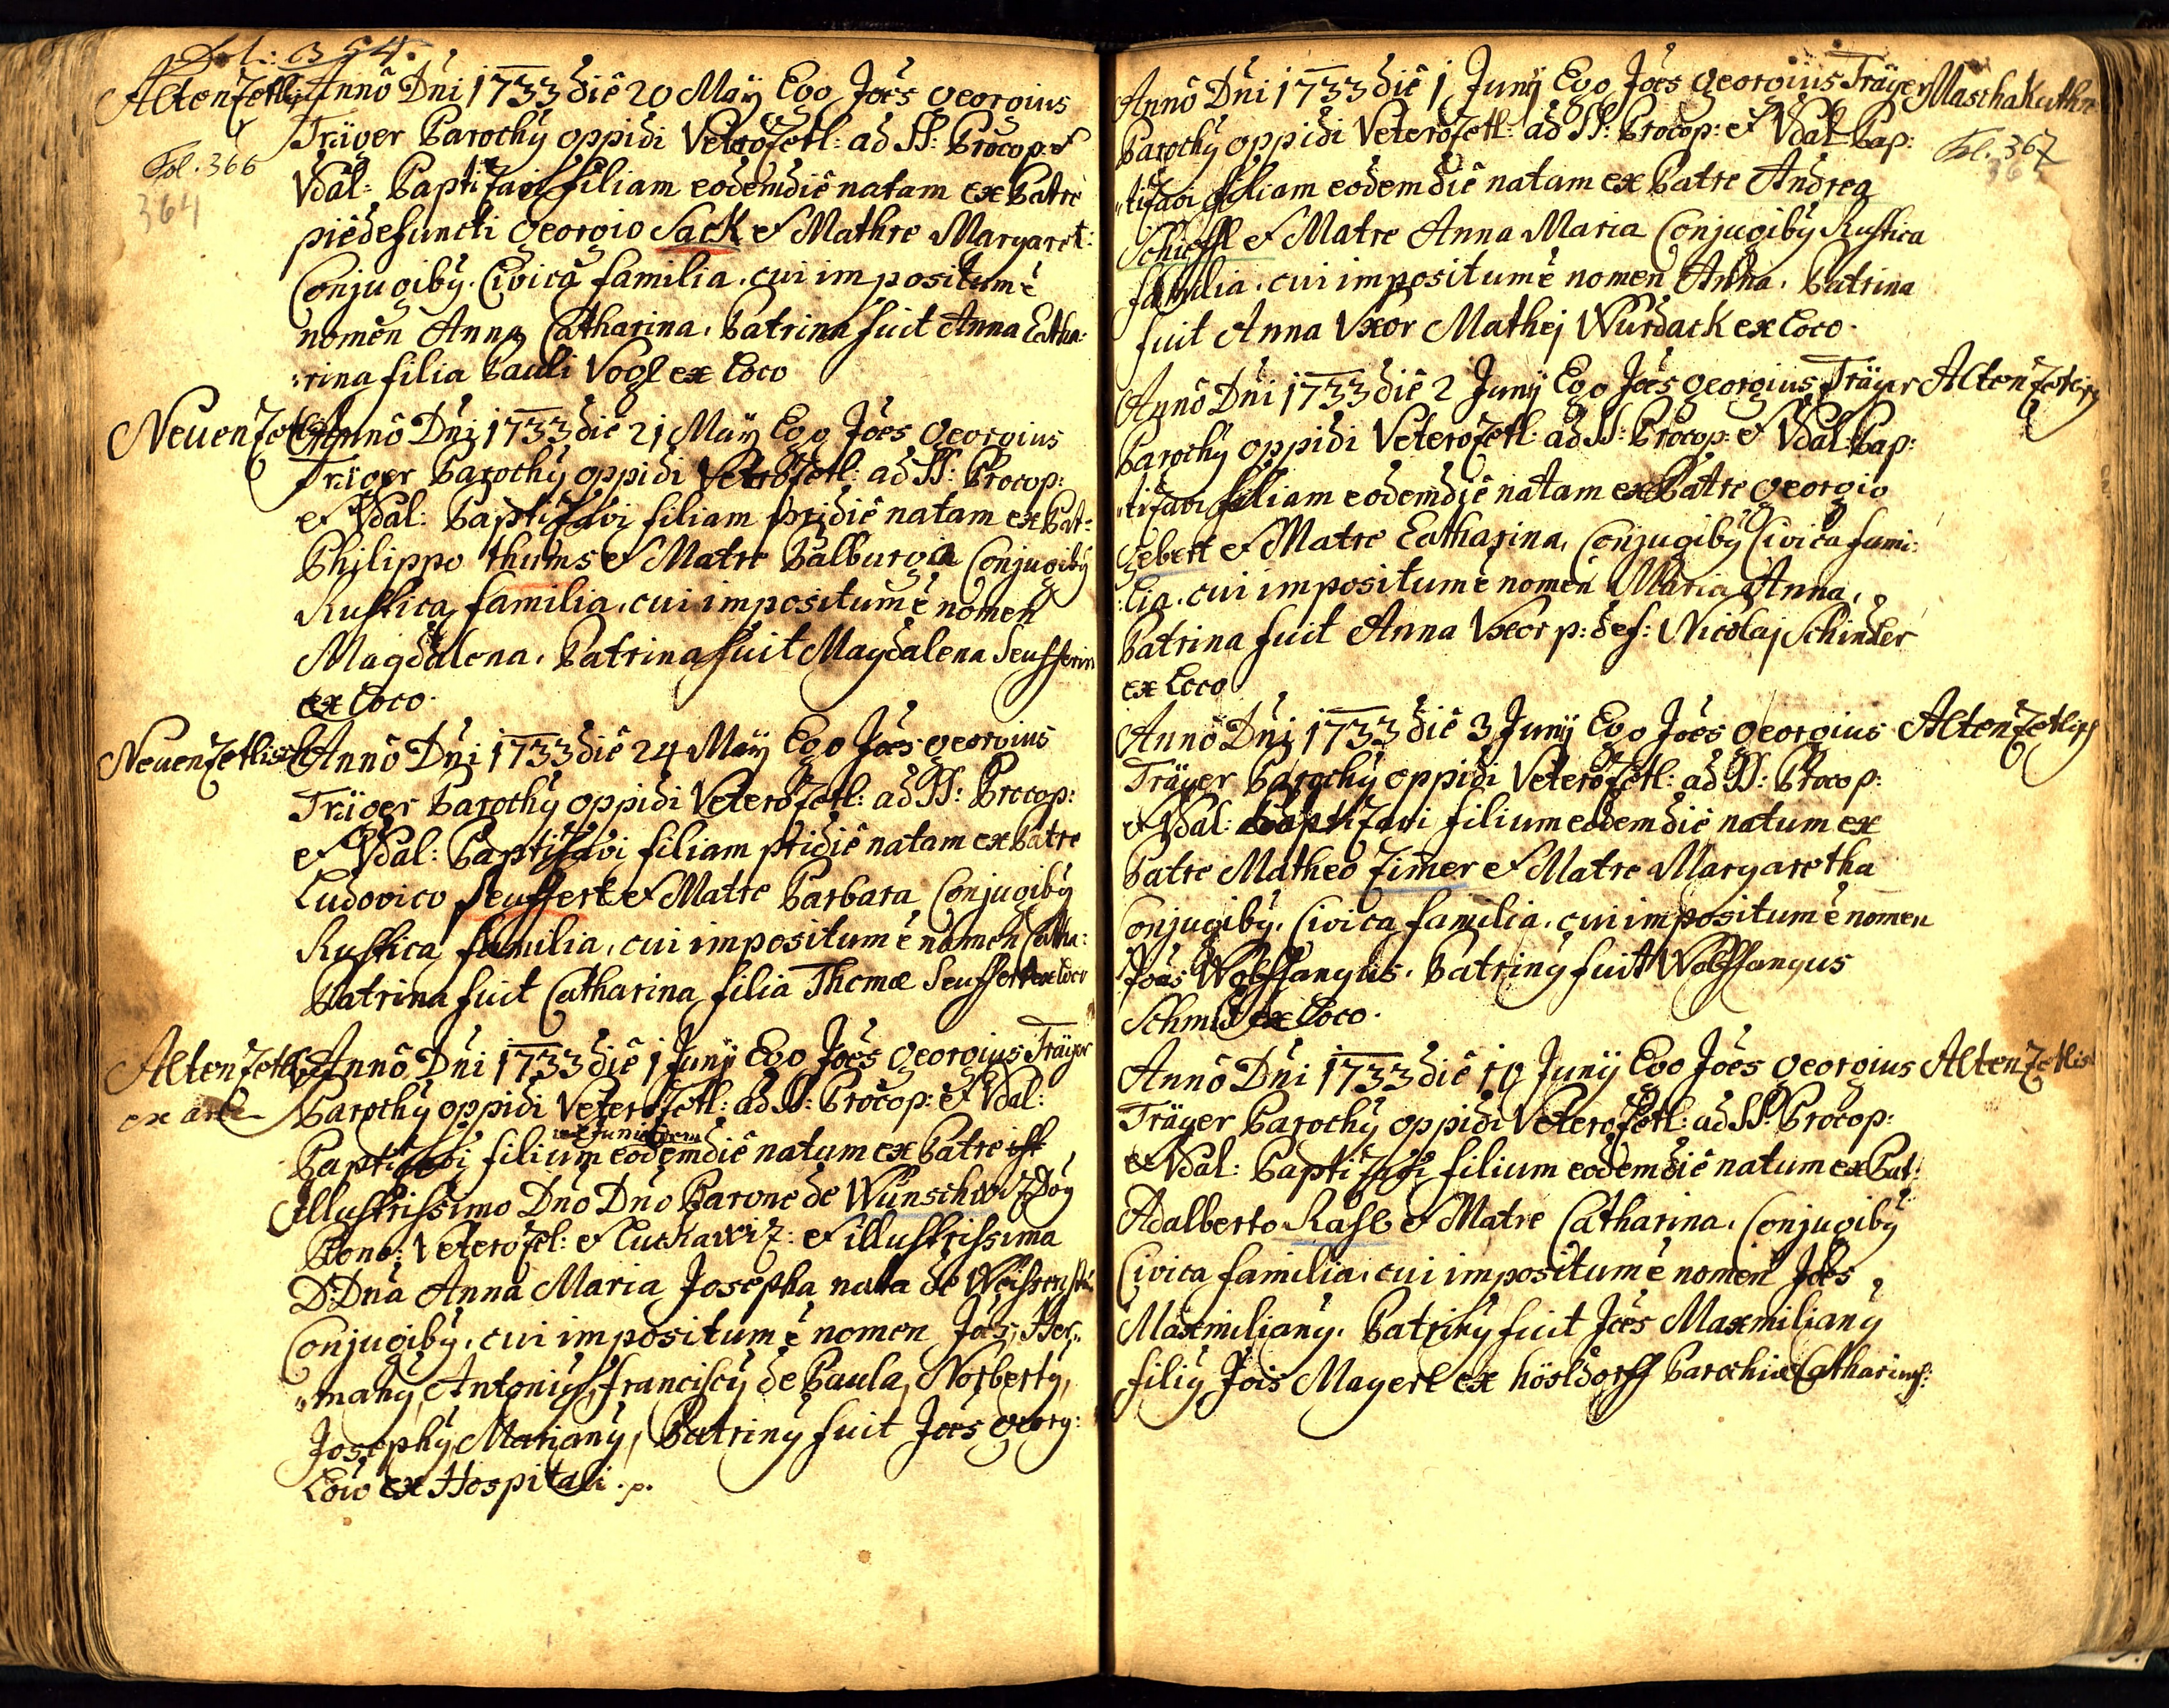 Fol: 354.
AltenZetlisch
Fol. 366
364
Annô Dni 1733 diê 20 Maÿ Ego Joês Georgius
Träger Parochÿ oppidi VeteroZetl: ad SS: Procop: et
Vdal: BaptiZavi filiam eodemdiê natam ex Patre
piêdefuncti Georgio Sack et Mathre Margaret:
Conjugibÿ. Civica familia. cui impositum ê
nomen Anna Catharina. Patrina fuit Anna Catha:
rina filia Pauli Vogl ex Loco
NeuenZetlisch
Annô Dni 1733 diê 21 Maÿ Ego Joês Georgius
Träger Parochÿ oppidi VeteroZetl: ad SS: Procop:
et Vdal: BaptiZavi filiam pridiê natam ex Pat:
Philippo thums et Matre Balburga Conjugibÿ
Rustica familia. cui impositum ê nomen
Magdalena. Patrina fuit Magdalena Seufferin
ex Loco.
NeuenZetlisch
Annô Dni 1733 diê 24 Maÿ Ego Joês Georgius
Träger Parochÿ oppidi VeteroZetl: ad SS: Procop:
et Vdal: BaptiZavi filiam pridiê natam ex Patre
Ludovico Seuffert et Matre Barbara Conjugibÿ
Rustica familia, cui impositum ê nomen Catha:
Patrina fuit Catharina filia Thomæ Seuffert ex Loco
AltenZetl
ex arce
Annô Dni 1733 diê 1 Junÿ Ego Joês Georgius Träger
Parochÿ oppidi VeteroZetl: ad SS: Procop: et Vdal:
BaptiZavi filium eodemdiê natum ex Patre
Illustrissimo Dno Dno Barone de Wunschwiz
VeteroZel: et Luckawiz: et illustrissima
D:Dna Anna Maria Josepha nata de
Conjugibÿ. cui impositum ê nomen Joês, Her„
„manÿ Antoniÿ, Franciscÿ de Paula, Norbertÿ,
Josephÿ, Marianÿ, Patrinÿ fuit Joês Georg:
Löw ex Hospitali .p.
Annô Dni 1733 diê 1 Junÿ Ego Joês Georgius Träger
MaschaKuthen
Fol. 367
365
Parochÿ oppidi VeteroZetl: ad SS: Procop: et Vdal Bap:
„tiZavi filiam eodemdiê natam ex Patre Andrea
Schieffl et Matre Anna Maria Conjugibÿ Rustica
familia. cui impositum ê nomen Anna. Patrina
fuit Anna Vxor Mathej Wurdack ex Loco.
Annô Dni 1733 diê 2 Junÿ Ego Joês Georgius Träger
AltenZetlisch
Parochÿ oppidi VeteroZetl: ad SS: Procop: et Vdal: Bap:
„tiZavi filiam eodemdiê natam ex Patre Georgio
Gebert et Matre Catharina, Conjugibÿ Civica fami:
lia. cui impositum ê nomen Maria Anna.
Patrina fuit Anna Vxor p: def: Nicolaj Schinder
ex Loco
Annô Dni 1733 diê 3 Junÿ Ego Joês Georgius
AltenZetlisch
Träger Parochÿ oppidi VeteroZetl: ad SS: Procop:
et Vdal: BaptiZavi filium eodemdiê natum ex
Patre Matheo Zimer et Matre Margaretha
Conjugibÿ. Civica familia. cui impositum ê nomen
Joês Wolffangus. Patrinÿ fuit Wolffangus
Schmid ex Loco.
Annô Dni 1733 diê 10 Junÿ Ego Joês Georgius
AltenZetlisch
Träger Parochÿ oppidi VeteroZetl: ad SS: Procop:
et Vdal: BaptiZavi filium eodemdiê natum ex Pat:
Adalberto Rasl et Matre Catharina. Conjugibÿ
Civica familia. cui impositum ê nomen Joês
Maxmilianÿ. Patrinÿ fuit Joês Maxmilianÿ
filiÿ Jois Mayerl ex hösldorff Parochiæ